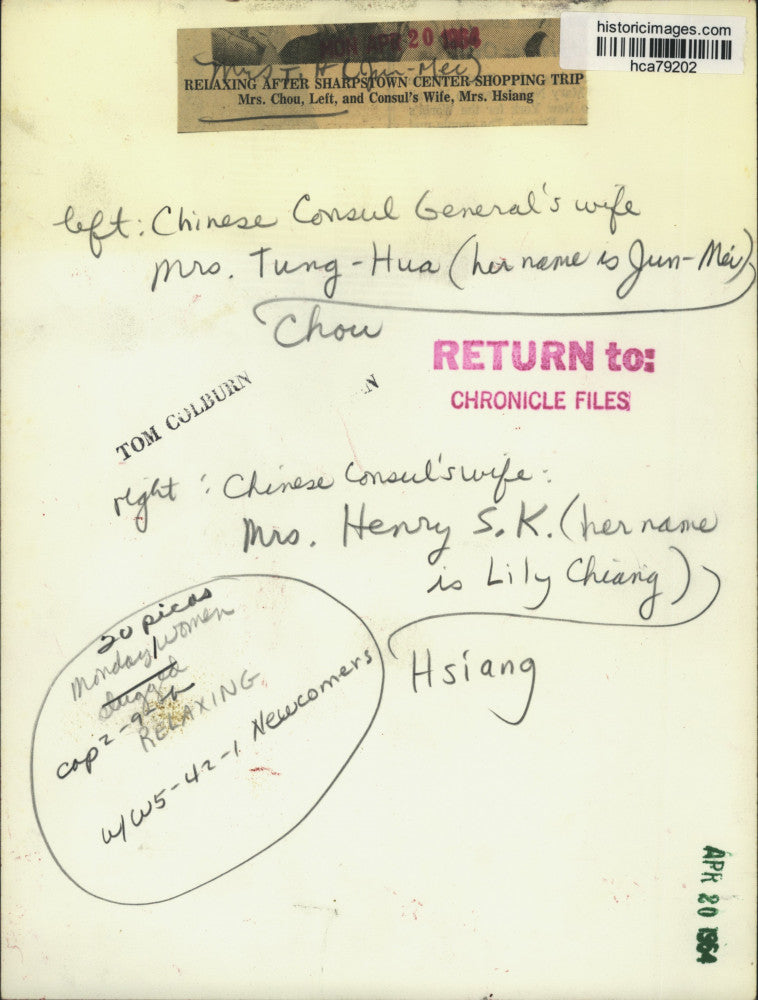 historicimages.com
hca79202
MON APR 20 1964
Mrs T. H (Jun-Mei)
RELAXING AFTER SHARPSTOWN CENTER SHOPPING TRIP
Mrs. Chou, Left, and Consul's Wife, Mrs. Hsiang
left: Chinese Consul General's wife
Mrs. Tung-Hua (her name is Jun-Mei)
Chou
RETURN to:
CHRONICLE FILES
TOM COLBURN
N
right: Chinese Consul's wife:
Mrs. Henry S. K. (her name
is Lily Chiang)
Hsiang
20 picas
Monday/women
slugged
cap 2-9
RELAXING
w/W5-42-1 Newcomers
APR 20 1964